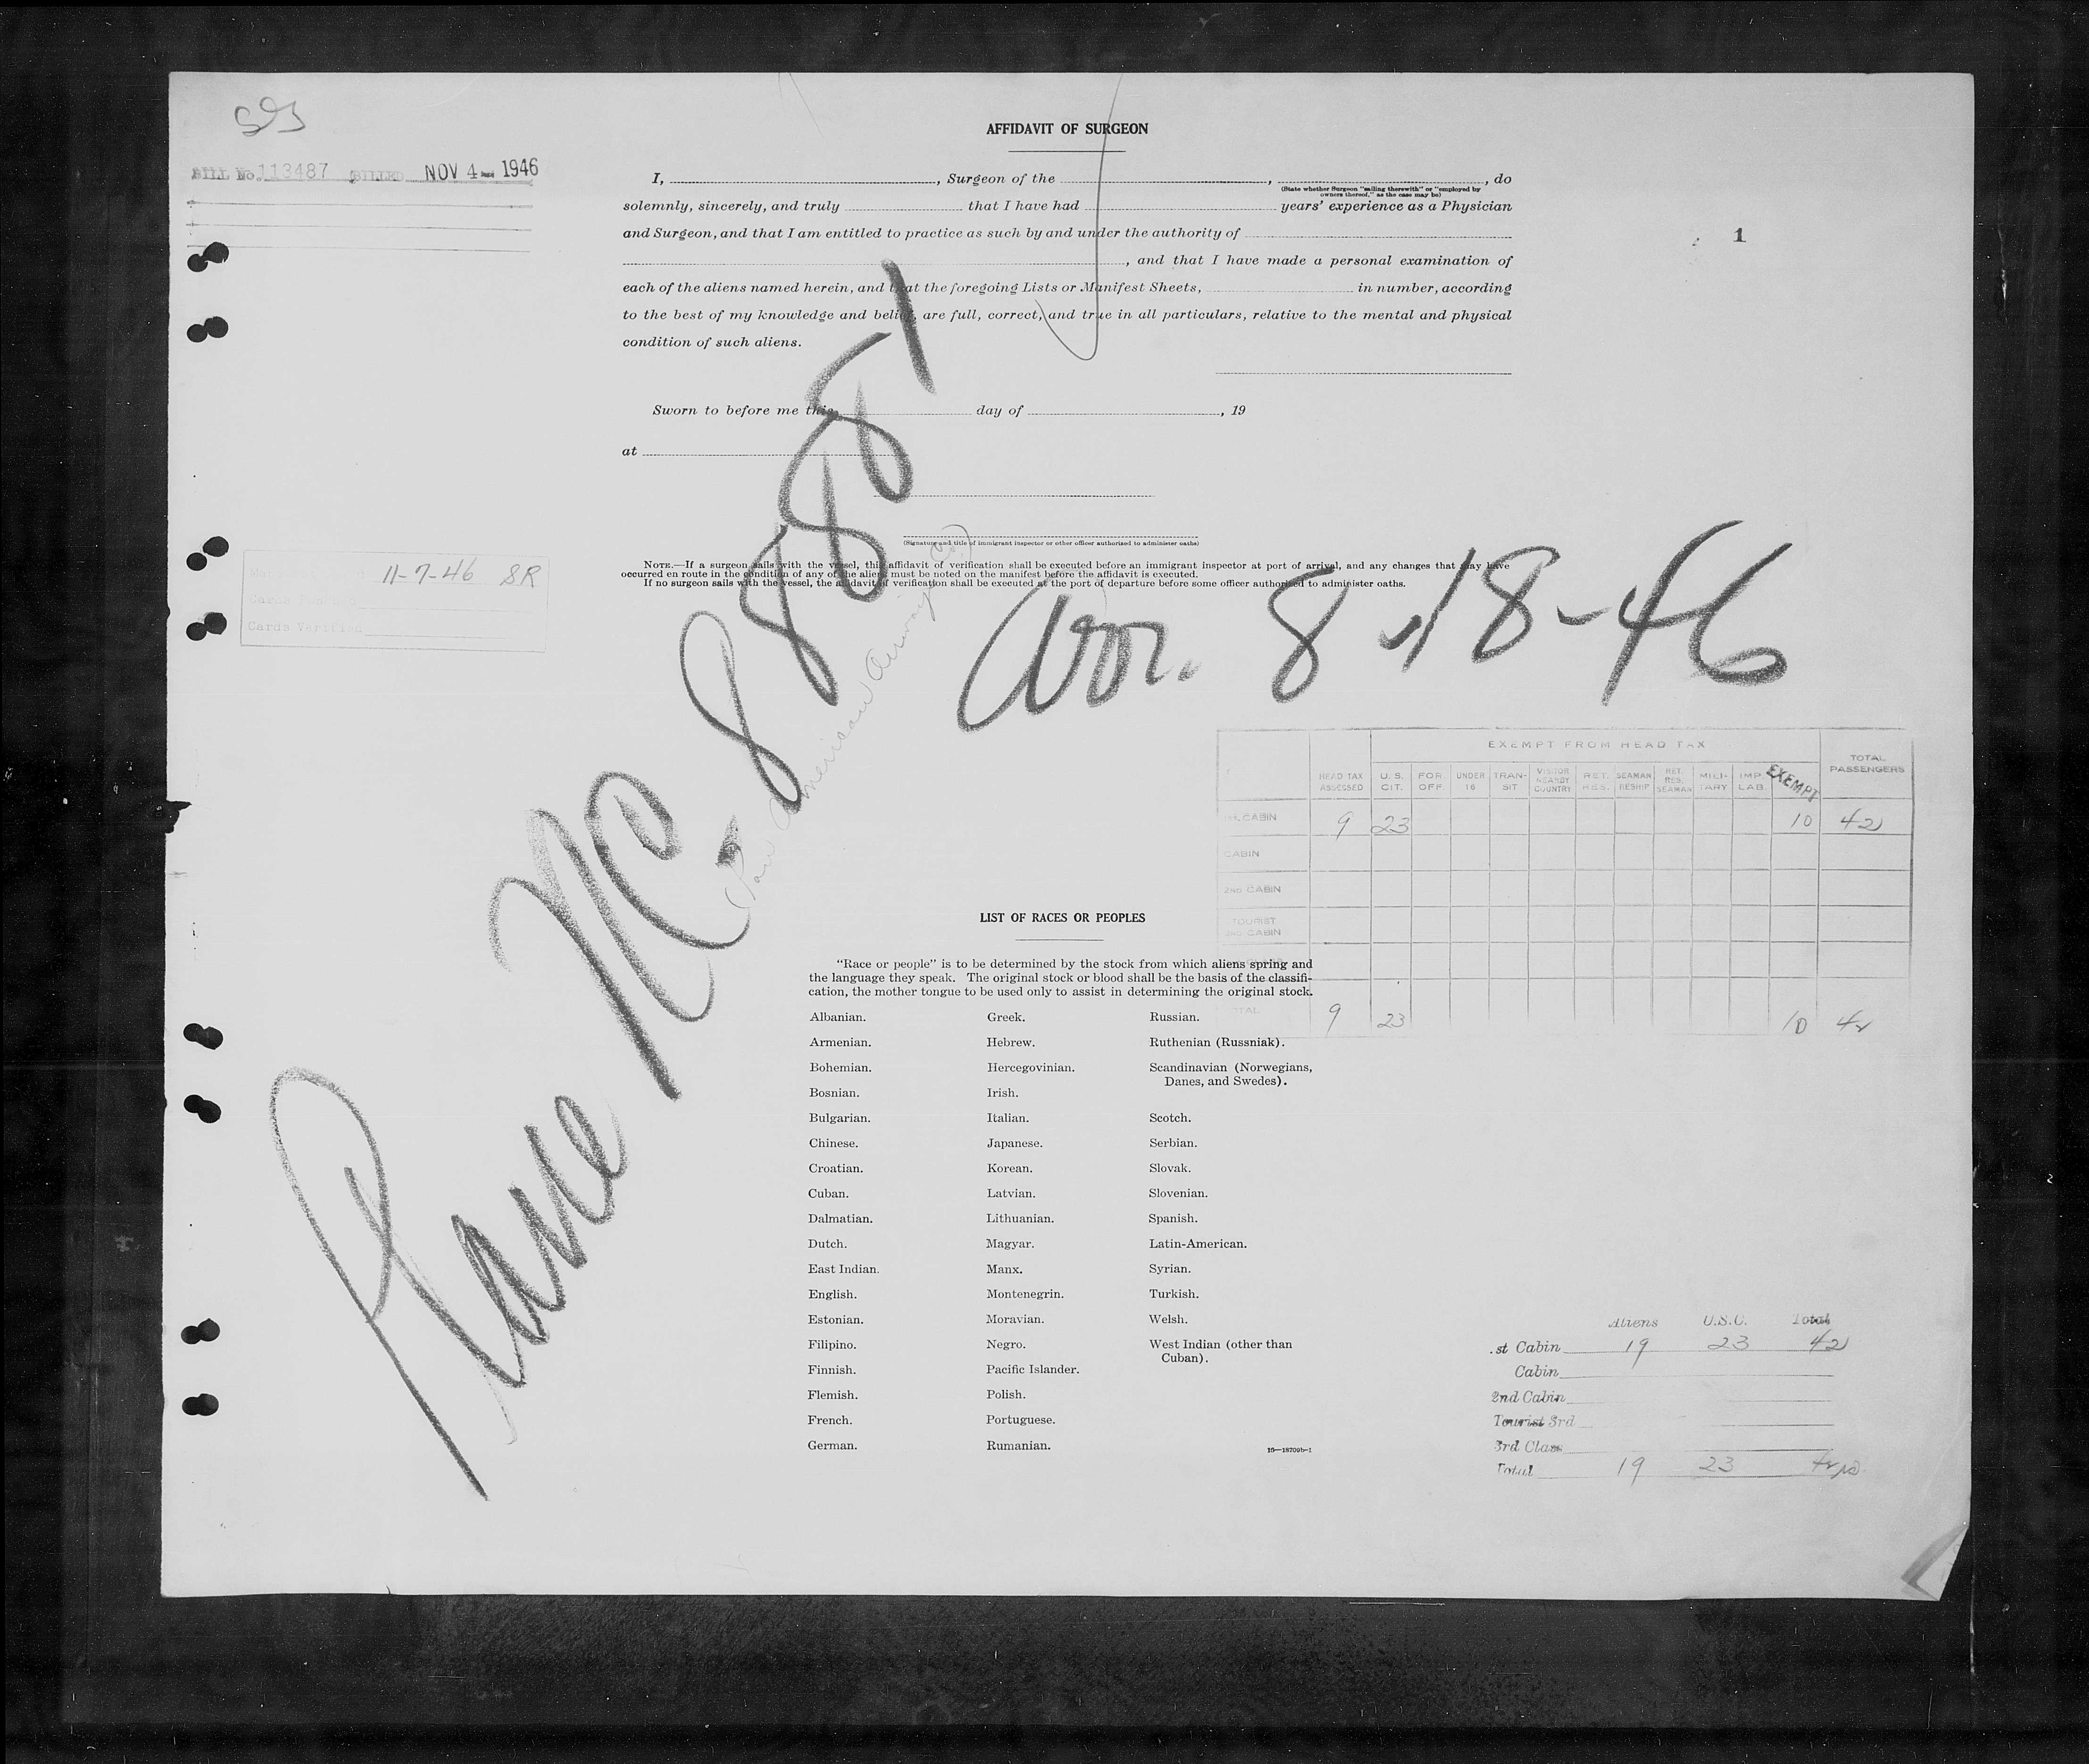 BILL No. 113487 BILLED NOV 4 1946
AFFIDAVIT OF SURGEON
I, , Surgeon of the , , do
(State whether Surgeon "sailing therewith" or "employed by owners thereof," as the case may be)
solemnly, sincerely, and truly that I have had years' experience as a Physician
and Surgeon, and that I am entitled to practice as such by and under the authority of
, and that I have made a personal examination of
each of the aliens named herein, and that the foregoing Lists or Manifest Sheets, in number, according
to the best of my knowledge and belief, are full, correct, and true in all particulars, relative to the mental and physical
condition of such aliens.
1
Sworn to before me this day of , 19
at
(Signature and title of immigrant inspector or other officer authorized to administer oaths)
NOTE.—If a surgeon sails with the vessel, this affidavit of verification shall be executed before an immigrant inspector at port of arrival, and any changes that may have
occurred en route in the condition of any of the aliens must be noted on the manifest before the affidavit is executed.
If no surgeon sails with the vessel, the affidavit of verification shall be executed at the port of departure before some officer authorized to administer oaths.
11-7-46 SR
Cards Verified
Plane NC-88881
(Pan American Airways Co.)
Arr. 8-18-46
EXEMPT FROM HEAD TAX
HEAD TAX ASSESSED U.S. CIT. FOR. OFF. UNDER 16 TRANSIT VISITOR NEARBY COUNTRY RET. RES. SEAMAN RESHIP RET. RES. SEAMAN MILITARY IMP. LAB. EXEMPT TOTAL PASSENGERS
1st. CABIN 9 23 10 42
CABIN
2ND CABIN
TOURIST
2ND. CABIN
TOTAL 9 23 10 42
LIST OF RACES OR PEOPLES
"Race or people" is to be determined by the stock from which aliens spring and
the language they speak. The original stock or blood shall be the basis of the classifi-
cation, the mother tongue to be used only to assist in determining the original stock.
Albanian. Greek. Russian.
Armenian. Hebrew. Ruthenian (Russniak).
Bohemian. Hercegovinian. Scandinavian (Norwegians,
Danes, and Swedes).
Bosnian. Irish.
Bulgarian. Italian. Scotch.
Chinese. Japanese. Serbian.
Croatian. Korean. Slovak.
Cuban. Latvian. Slovenian.
Dalmatian. Lithuanian. Spanish.
Dutch. Magyar. Latin-American.
East Indian. Manx. Syrian.
English. Montenegrin. Turkish.
Estonian. Moravian. Welsh.
Filipino. Negro. West Indian (other than
Cuban).
Finnish. Pacific Islander.
Flemish. Polish.
French. Portuguese.
German. Rumanian.
16—18709b-1
Aliens U.S.C. Total
1st Cabin 19 23 42
Cabin
2nd Cabin
Tourist 3rd
3rd Class
Total 19 23